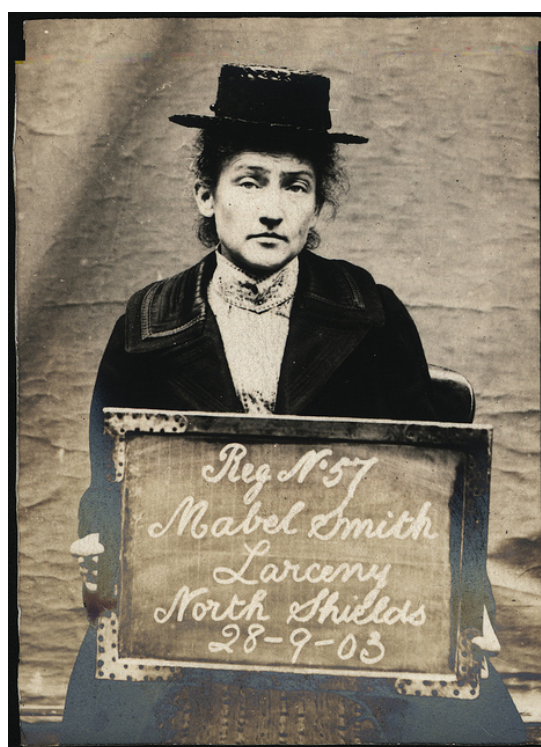 Reg Nº 57
Mabel Smith
Larceny
North Shields
28-9-03